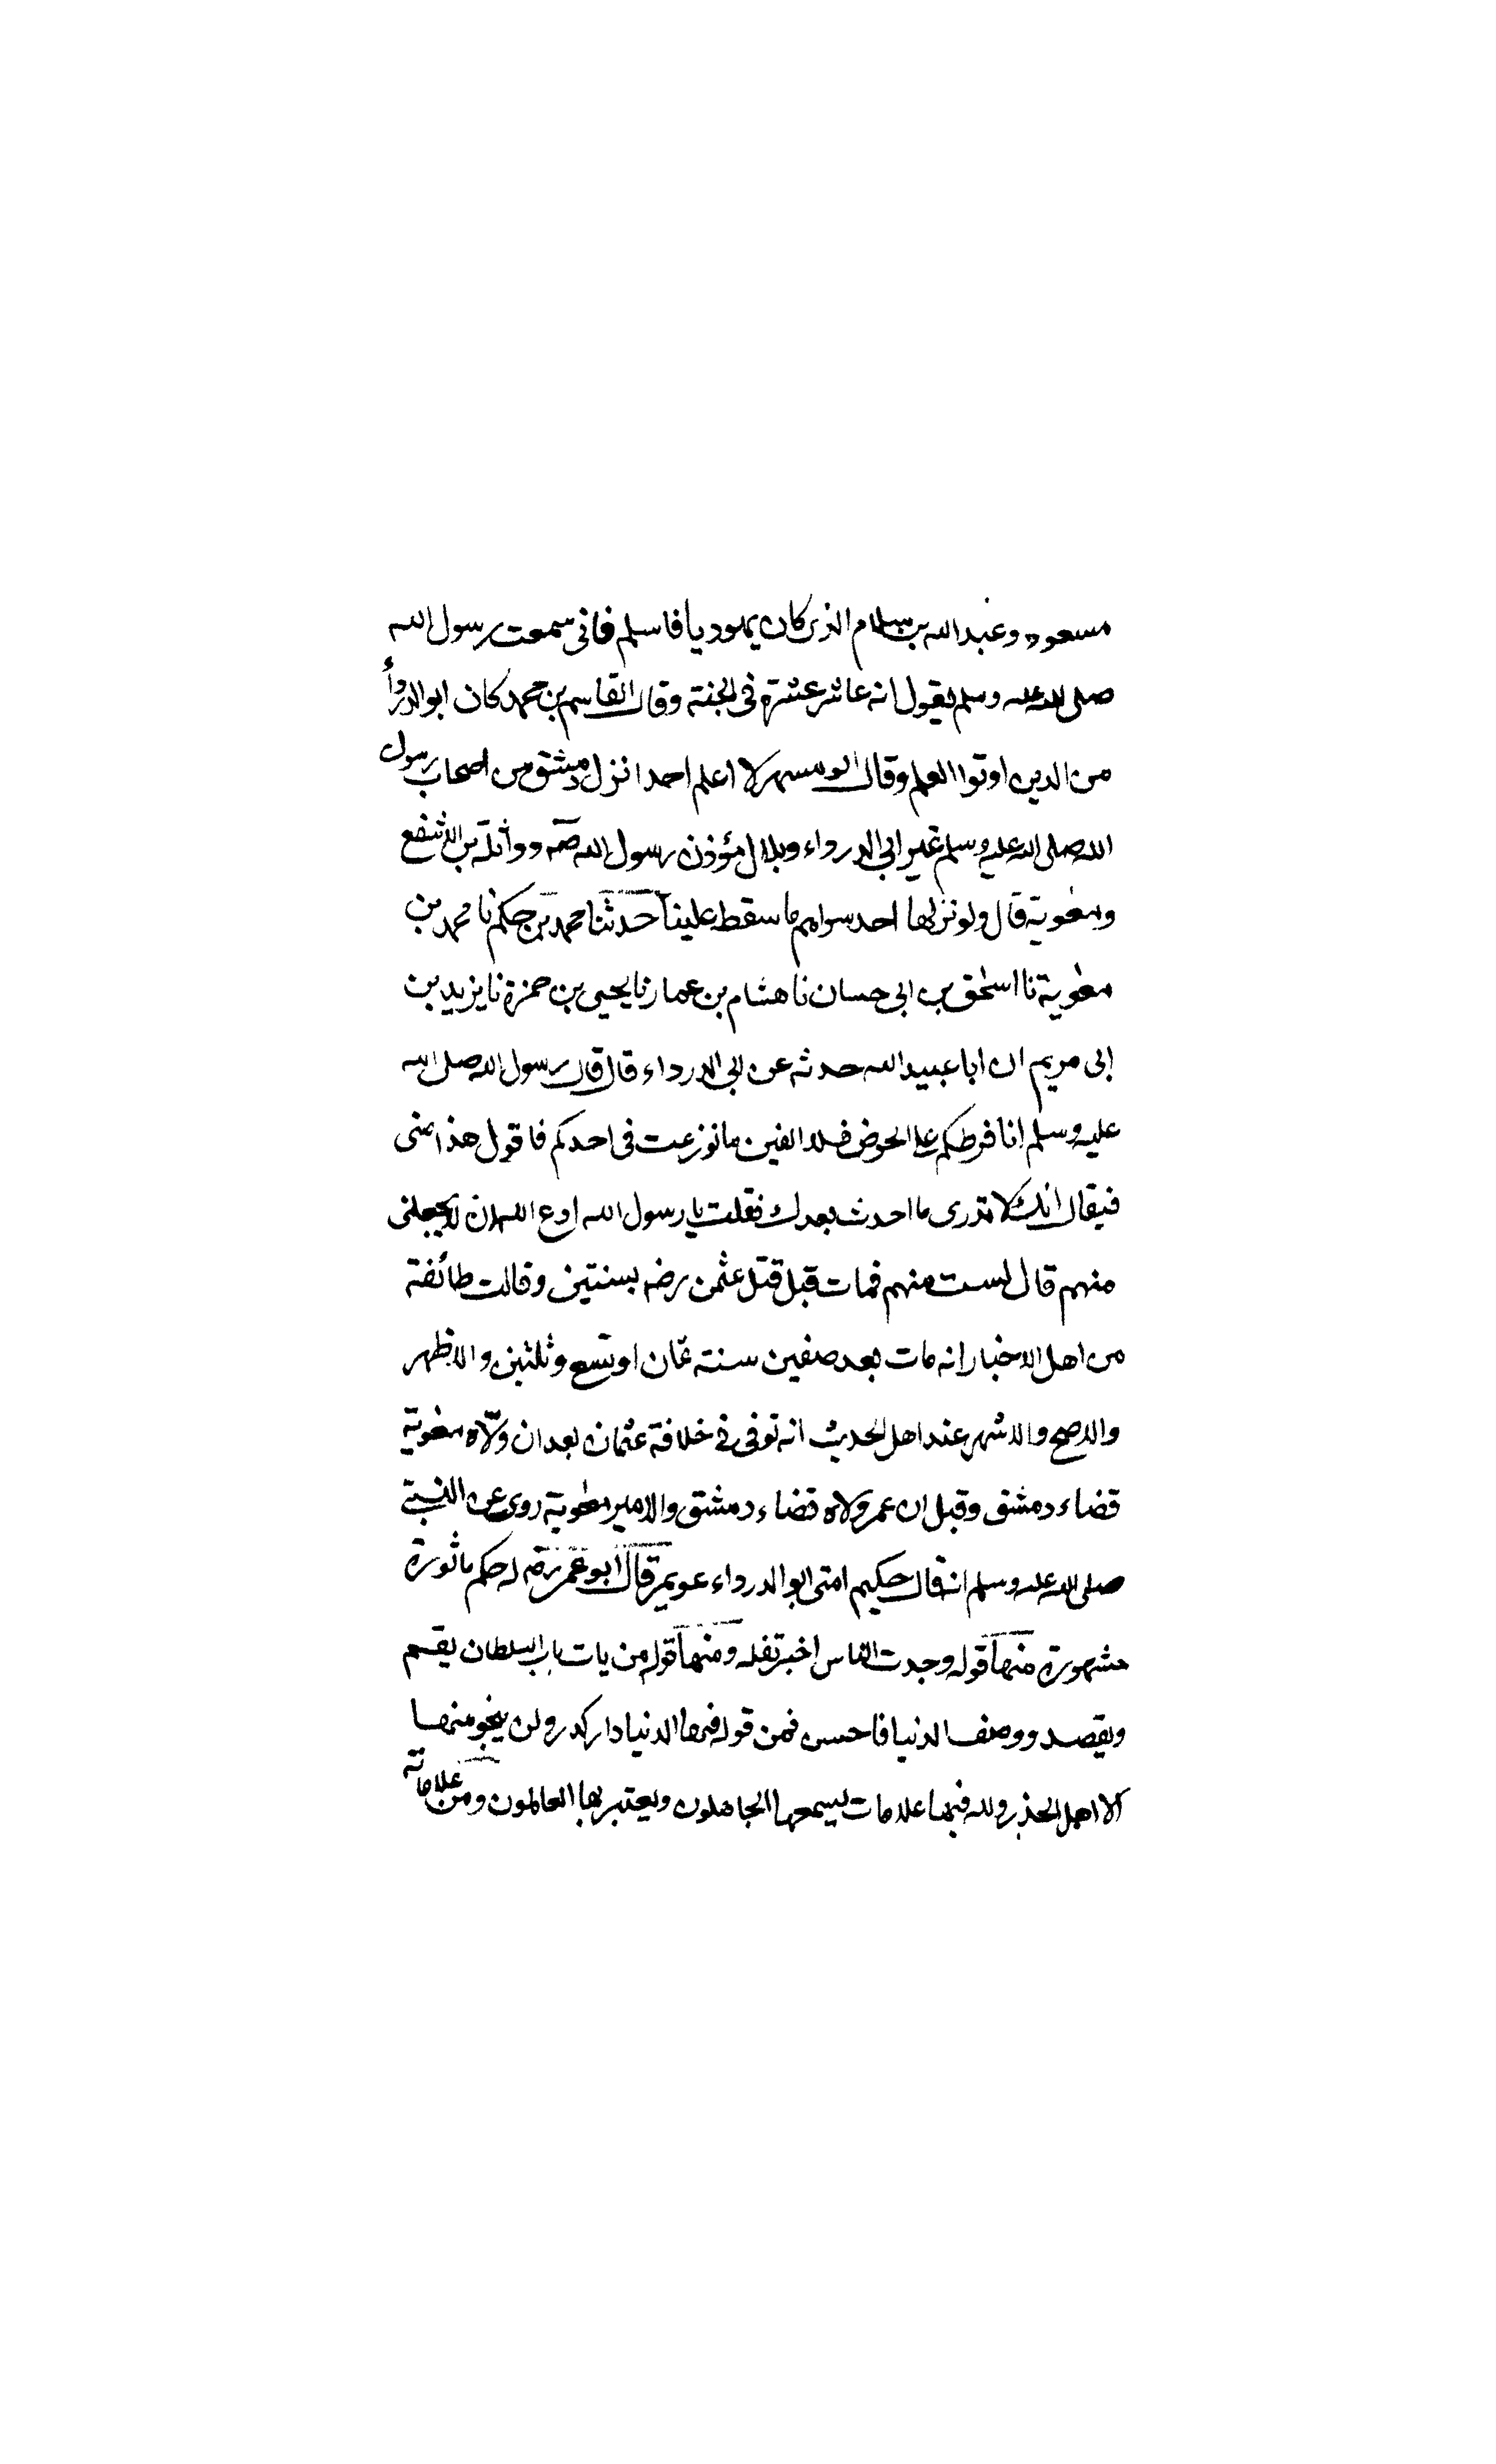 مسعود وعبد الله بن سلام الذى كان يهوديا فاسلم فانى سمعت رسول الله
صلى الله عليه وسلم يقول انه عاشر عشرة فى الجنة وقال القاسم بن محمد كان ابو الدرداء
من الذين اوتوا العلم وقال ابو مسهر لا اعلم احدا نزل دمشق من اصحاب رسول
الله صلى الله عليه وسلم غير ابى الدرداء وبلال مؤذن رسول الله صم وواثلة بن الاسقع
ومعوية قال ولو نزلها احد سواهم ما سقط علينا حدثنا محمد بن حكم نا محمد بن
معوية نا اسحق بن ابى حسان نا هشام بن عمار نا يحيى بن حمزة نا يزيد بن
ابى مريم ان ابا عبيد الله حدثه عن ابى الدرداء قال قال رسول الله صلى الله
عليه وسلم انا فرطكم على الحوض فلا الفين ما نوزعت فى احدكم فاقول هذا منى
فيقال انك لا تدرى ما احدث بعدك فقلت يا رسول الله ادع الله ان لا يجعلنى
منهم قال لست منهم فمات قبل قتل عثمن رضه بسنتين وقالت طائفة
من اهل الاخبار انه مات بعد صفين سنة ثمان او تسع وثلثين والاظهر
والاصح والاشهر عند اهل الحديث انه توفى فى خلافة عثمان بعد ان ولّاه معوية
قضاء دمشق وقيل ان عمر ولاه قضاء دمشق والامير معوية روى عن النبى
صلى الله عليه وسلم انه قال حكيم امتى ابو الدرداء عويمر قال ابو عمر رضه له حكم ماثورة
مشهورة منها قوله وجدت الناس اخبر تقله ومنها قوله من يات باب السلطان يقم
ويقعد ووصف الدنيا فاحسن فمن قوله فيها الدنيا دار كدر ولن ينجو منها
الا اهل الحذر ولله فيها علامات يسمعها الجاهلون ويعتبر بها العالمون ومن علاماته